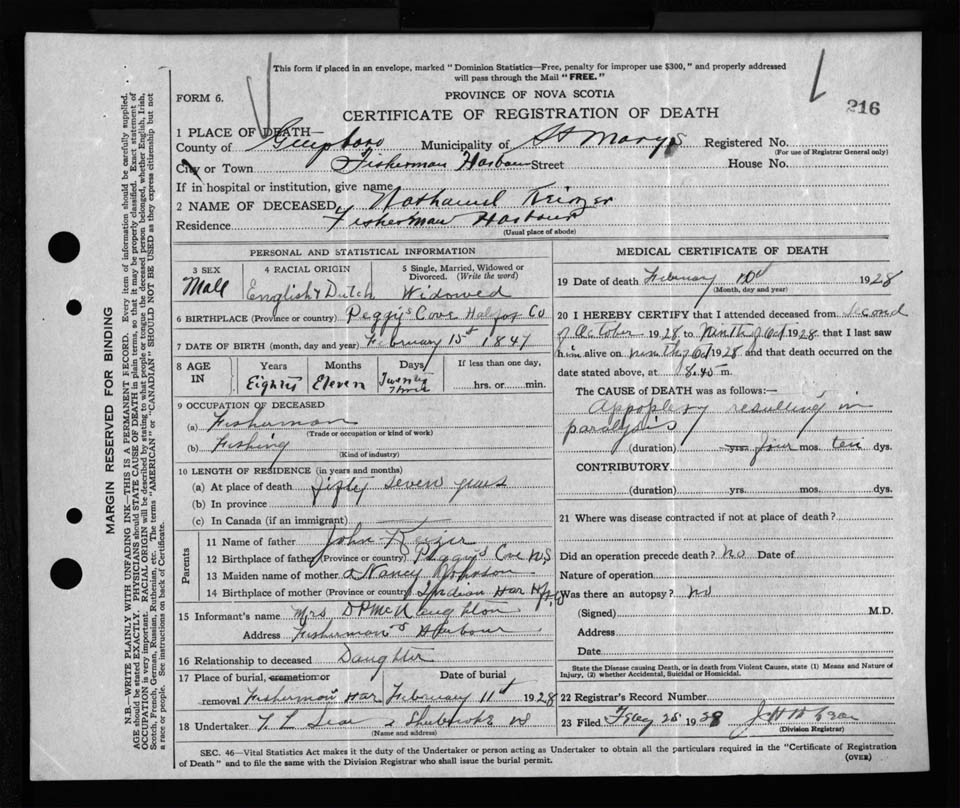 This form if placed in an envelope, marked "Dominion Statistics—Free, penalty for improper use $300," and properly addressed
will pass through the Mail "FREE."
FORM 6.
PROVINCE OF NOVA SCOTIA
216
CERTIFICATE OF REGISTRATION OF DEATH
1 PLACE OF DEATH—
County of Municipality of St Marys Registered No.
(For use of Registrar General only)
City or Town Fisherman Harbour Street House No.
If in hospital or institution, give name
2 NAME OF DECEASED, Nathaniel Keizer
Residence Fisherman Harbour
(Usual place of abode)
PERSONAL AND STATISTICAL INFORMATION
3 SEX
Male
4 RACIAL ORIGIN
English & Dutch
5 Single, Married, Widowed or
Divorced. (Write the word)
Widowed
6 BIRTHPLACE (Province or country) Peggy's Cove Halifax Co
7 DATE OF BIRTH (month, day and year) February 15th 1847
8 AGE
IN
Years
Eighty
Months
Eleven
Days
Twenty
three
If less than one day,
hrs. or min.
9 OCCUPATION OF DECEASED
(a) Fisherman
(Trade or occupation or kind of work)
(b) Fishing
(Kind of industry)
10 LENGTH OF RESIDENCE (in years and months)
(a) At place of death fifty seven years
(b) In province
(c) In Canada (if an immigrant)
Parents
11 Name of father John Keizer
12 Birthplace of father (Province or country) Peggy's Cove N.S
13 Maiden name of mother Nancy Johnson
14 Birthplace of mother (Province or country) Indian Har
15 Informant's name Mrs D P McNaughton
Address Fisherman's Harbour
16 Relationship to deceased Daughter
17 Place of burial, cremation or
removal Fisherman Har
Date of burial
February 11th 1928
18 Undertaker Sherbrooke NS
(Name and address)
MEDICAL CERTIFICATE OF DEATH
19 Date of death February 10th 1928
(Month, day and year)
20 I HEREBY CERTIFY that I attended deceased from second
of October 1928 to Ninth of Oct 1928 that I last saw
him alive on ninth of Oct 1928 and that death occurred on the
date stated above, at 8.45 m.
The CAUSE OF DEATH was as follows:—
Appoplexy resulting in
paralysis
(duration) yrs. four mos. ten dys.
CONTRIBUTORY.
(duration) yrs. mos. dys.
21 Where was disease contracted if not at place of death?
Did an operation precede death? no Date of
Nature of operation
Was there an autopsy? no
(Signed) M.D.
Address
Date
State the Disease causing Death, or in death from Violent Causes, state (1) Means and Nature of
Injury, (2) whether Accidental, Suicidal or Homicidal.
22 Registrar's Record Number
23 Filed 25 1928
(Division Registrar)
SEC. 46—Vital Statistics Act makes it the duty of the Undertaker or person acting as Undertaker to obtain all the particulars required in the "Certificate of Registration
of Death" and to file the same with the Division Registrar who shall issue the burial permit.
(OVER)
MARGIN RESERVED FOR BINDING
N.B.—WRITE PLAINLY WITH UNFADING INK—THIS IS A PERMANENT RECORD. Every item of information should be carefully supplied.
AGE should be stated EXACTLY. PHYSICIANS should STATE CAUSE OF DEATH in plain terms, so that it may be properly classified. Exact statement of
OCCUPATION is very important. RACIAL ORIGIN will be described by stating to what people or tongue the deceased person belonged, whether English, Irish,
Scotch, French, German, Russian, Ruthenian, etc. The terms "AMERICAN" or "CANADIAN" SHOULD NOT BE USED as they express citizenship but not
a race or people. See instructions on back of Certificate.